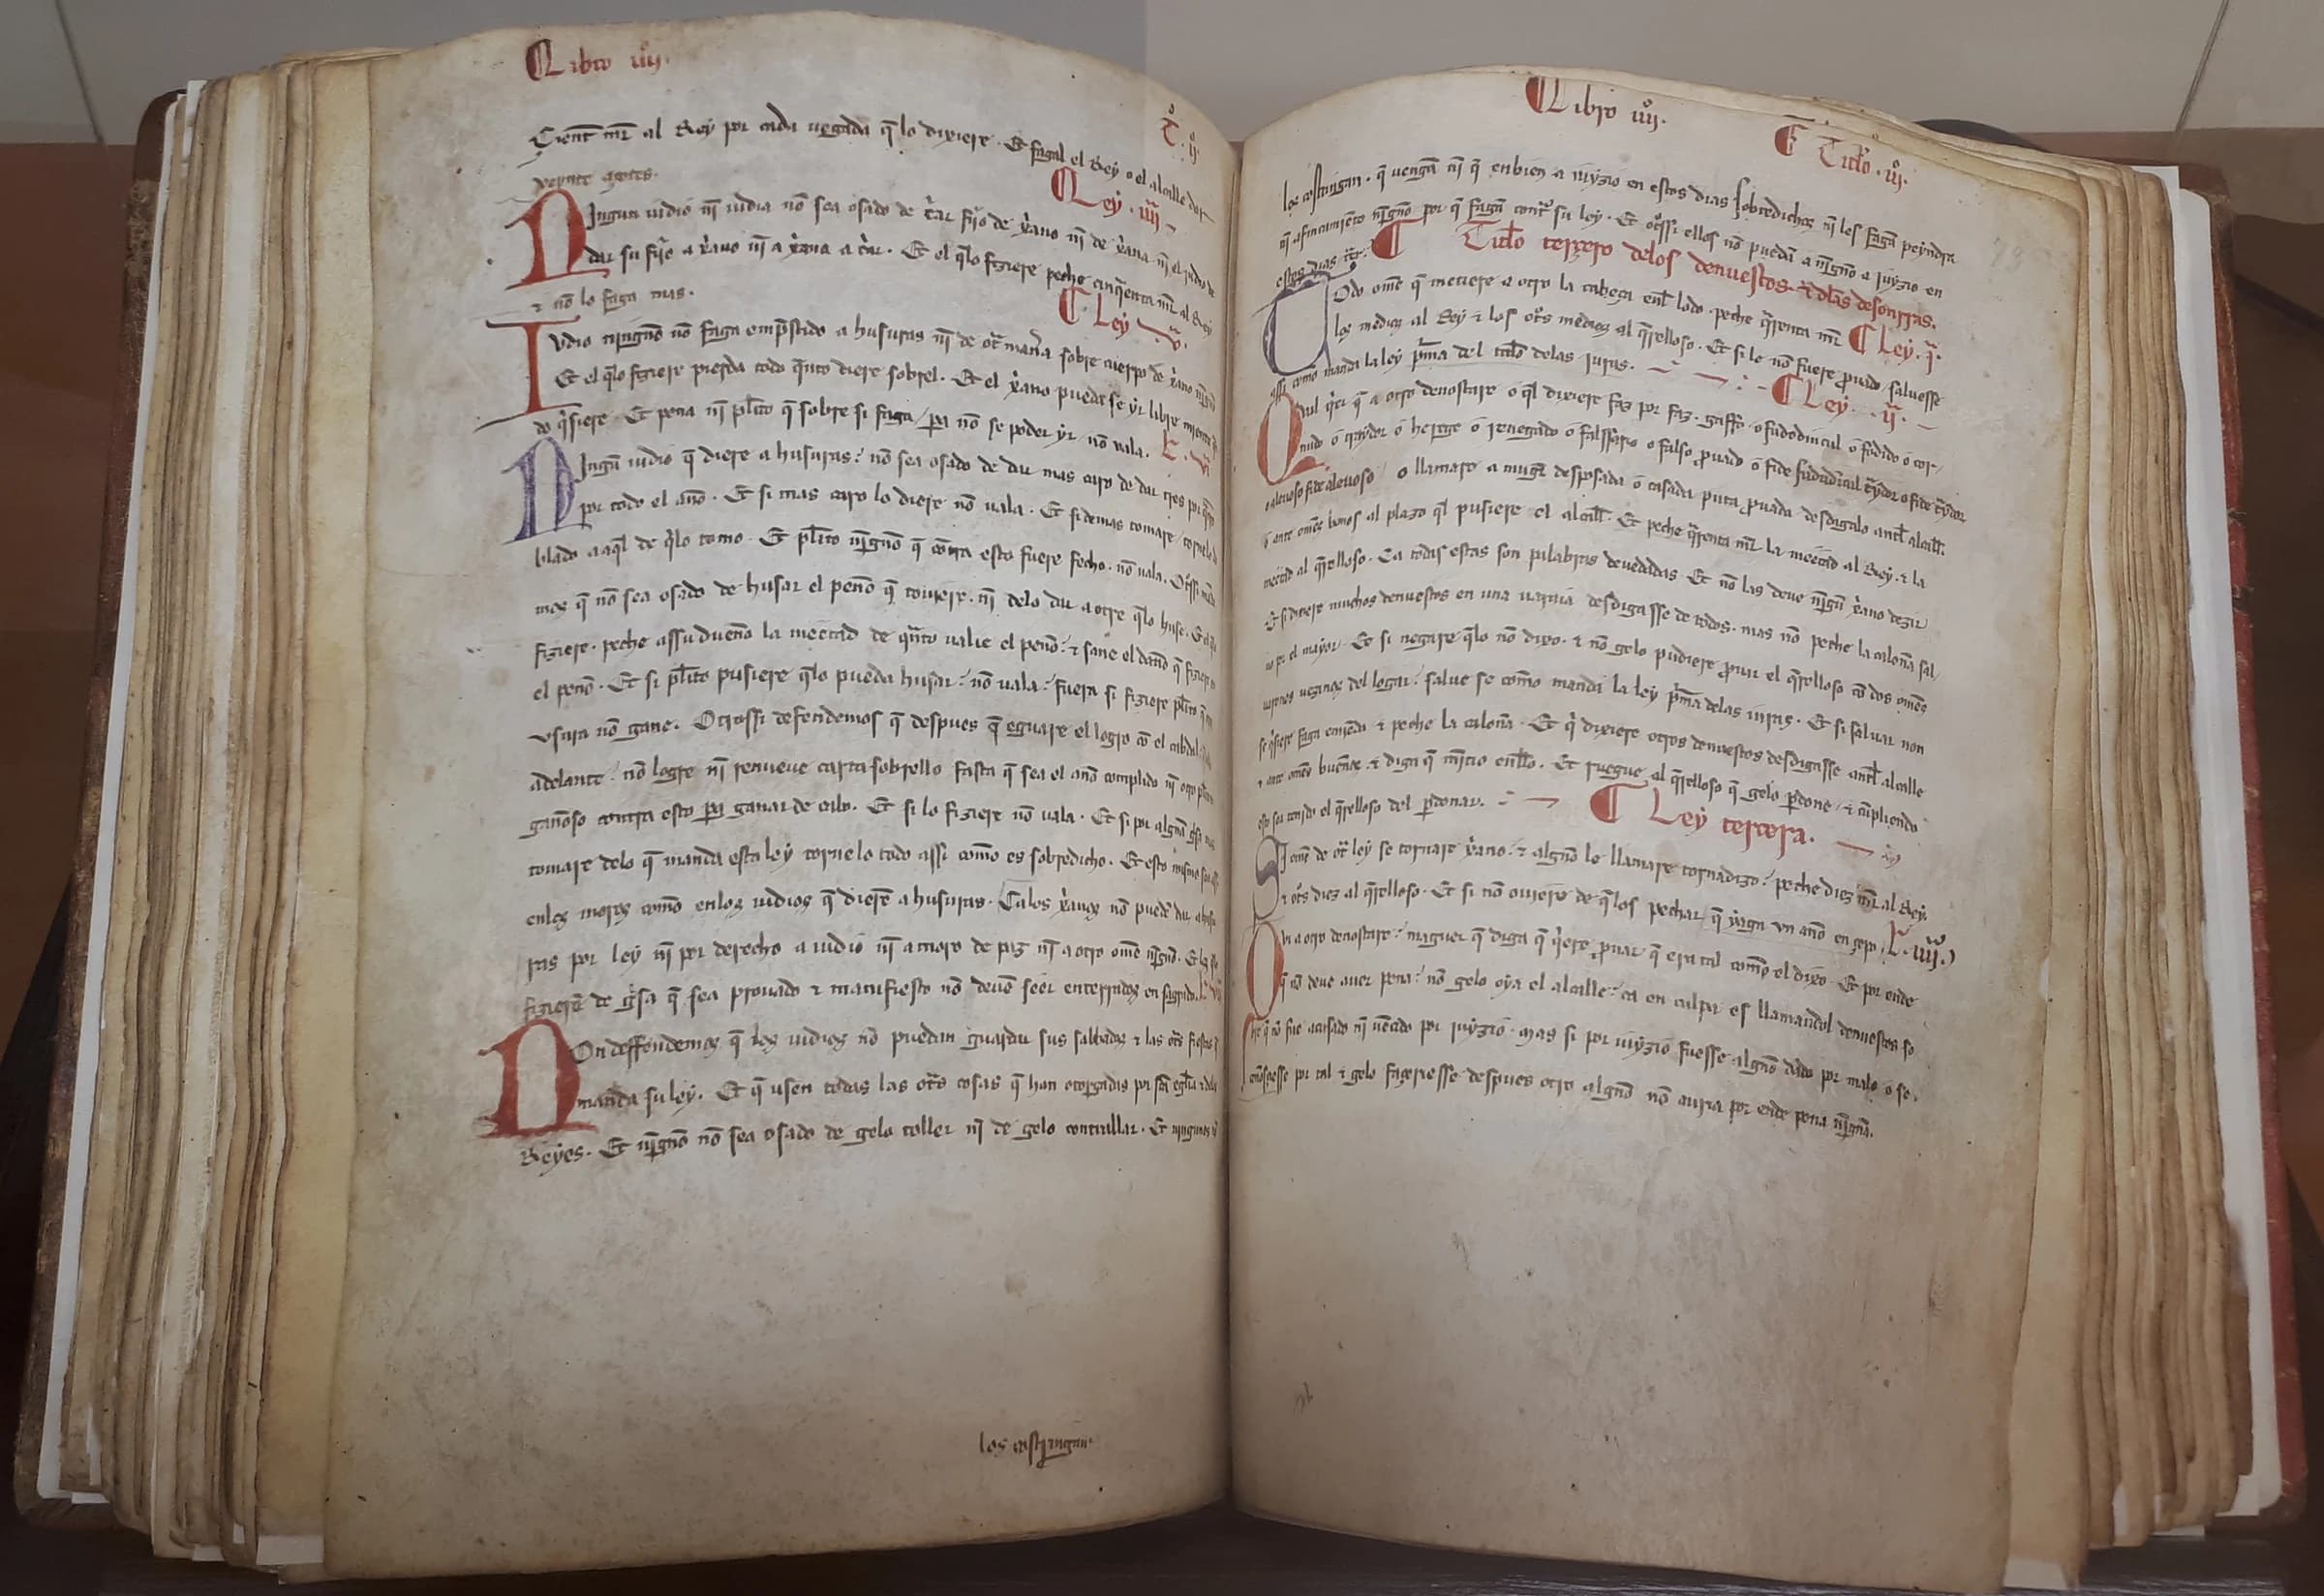 Libro iiijº.
T.º ijº
Çient mr̃ al Rey por cada uegada q̃ lo dixiere. Et fagal el Rey o el alcalle dar
veynte açotes.
Ley. iiijª
Ningun iudio nĩ iudia nõ sea osado de c̃ar fijo de xp̃ano nĩ de xp̃ana. nĩ el iudio de
dar su fijo a xp̃ano nĩ a xp̃ana a c̃ar. Et el q̃lo fiziere peche cinq̃enta mr̃ al Rey
⁊ nõ lo faga mas.
Ley vª.
Iudio ningũo nõ faga emp̃stido a husuras nĩ de ot̃ mañ̃a sobre cuerpo de xp̃ano
Et el q̃lo fiziere pierda todo q̃nto diere sobrel. Et el xp̃ano puedase yr libre mientre
do q̃siere. Et pena nĩ pl̃ito q̃ sobre si faga pa nõ se poder yr nõ uala. L. vjª
Ningũ iudio q̃ diere a husuras: nõ sea osado de dar mas caro de dar tres por
por todo el año. Et si mas caro lo diere nõ uala. Et si demas tomare
blado a aq̃l de q̃lo tomo. Et pl̃ito nĩguno q̃ cõtra esto fuere fecho. nõ uala. Ot̃ssi
mos q̃ nõ sea osado de husar el peño q̃ touiere. nĩ delo dar a otre q̃lo huse.
fiziere. peche assu dueño la meetad de q̃nto ualie el peño: ⁊ sane el daño q̃
el peño. Et si pl̃ito pusiere q̃lo pueda husar: nõ uala: fuera si fiziere pl̃ito
usura nõ gane. Otrossi defendemos q̃ despues q̃ eguare el logro cõ el cabdal
adelante: nõ logre nĩ renueue carta sobrello fasta q̃ sea el año complido nĩ
gañoso contra esto pa ganar de cabo. Et si lo fiziere nõ uala. Et si por algũa
tomare delo q̃ manda esta ley tornelo todo assi como es sobredicho. Et esto mismo
enlos moros como enlos iudios q̃ dierẽ a husuras. Ca los xp̃anos nõ puedẽ dar
ras por ley nĩ por derecho a iudio nĩ a moro de paz nĩ a otro ome nĩguno.
fizierẽ de g̃sa q̃ sea prouado ⁊ manifiesto nõ deuẽ seer enterrados en sagrado.
Non deffendemos q̃ los iudios nõ puedan guardar sus sabbados ⁊ las ot̃s fiestas
manda su ley. Et q̃ usen todas las ot̃s cosas q̃ han otorgadas por s̃ta eglia
Reyes. Et nĩguno nõ sea osado de gelo toller nĩ de gelo contrallar. Et ningunos
los costringan
Libro iiijº.
Titl̃o. iijº.
los costringan. q̃ uengã nĩ q̃ enbien a iuyzio en estos dias sobredichos nĩ les fagã peyndra
nĩ afincamiento nĩguno por q̃ fagã cont̃ su ley. Et ot̃ssi ellos nõ puedã a nĩguno a iuyzio en
estos dias
Titl̃o terçero delos denuestos ⁊ dl̃as desonrras.
Todo ome q̃ metiere a otro la cabeça enl̃ lodo. peche q̃renta mr̃ Ley. jª.
los medios al Rey ⁊ los ot̃s medios al q̃relloso. Et si le nõ fuere prouado. saluesse
assi como manda la ley p̃ma del titl̃o delas iuras. Ley. ijª.
Qual q̃er q̃ a otro denostare o q̃l dixiere faz por faz. gaffo o fududincul o fodido o cor
nudo o traydor o herege o renegado o falssario o falso prouado o fide fududincul t̃ydor o fide t̃ydor
o aleuoso fide aleuoso o llamare a muger desposada o casada puta prouada desdigalo antel alcall̃.
⁊ ante omes bonos al plazo q̃l pusiere el alcall̃. Et peche q̃renta mr̃ la meetad al Rey. ⁊ la
meetad al q̃relloso. Ca todas estas son palabras deuedadas. Et nõ las deue nĩgũ xp̃ano dezir
Et si dixere muchos denuestos en una uaraia desdigasse de todos. mas nõ peche la caloña sal
uo por el mayor. Et si negare q̃lo nõ dixo. ⁊ nõ gelo pudiere prouar el q̃relloso cõ dos omes
uarones uezinos del logar: salue se como manda la ley p̃ma delas iuras. Et si saluar non
se q̃siere faga emienda ⁊ peche la caloña. Et q̃ dixiere otros denuestos desdigasse antel alcalle
⁊ ante omes buenos: ⁊ diga q̃ mintio enello. Et ruegue al q̃relloso q̃ gelo p̃done. ⁊ cũpliendo
esto sea tenido el q̃relloso del p̃donar.
Ley tercera.
Si ome de ot̃ ley se tornare xp̃ano: ⁊ alguno le llamare tornadizo: peche diez mr̃ al Rey.
⁊ ot̃s diez al q̃relloso. Et si nõ ouiere de q̃ los pechar q̃ yaga un año en çepo. L. iiijª.
Qui a otro denostare: maguer q̃ diga q̃ q̃ere prouar q̃ era tal como el dixo. Et por ende
q̃ nõ deue auer pena: nõ gelo oya el alcalle: ca en culpa es llamandol denuestos so
bre q̃ nõ fue acusado nĩ uẽcido por iuyzio. Mas si por iuyzio fuesse alguno dado por malo o se
conosçesse por tal ⁊ gelo façeriesse despues otro alguno nõ aura por ende pena nĩguna.